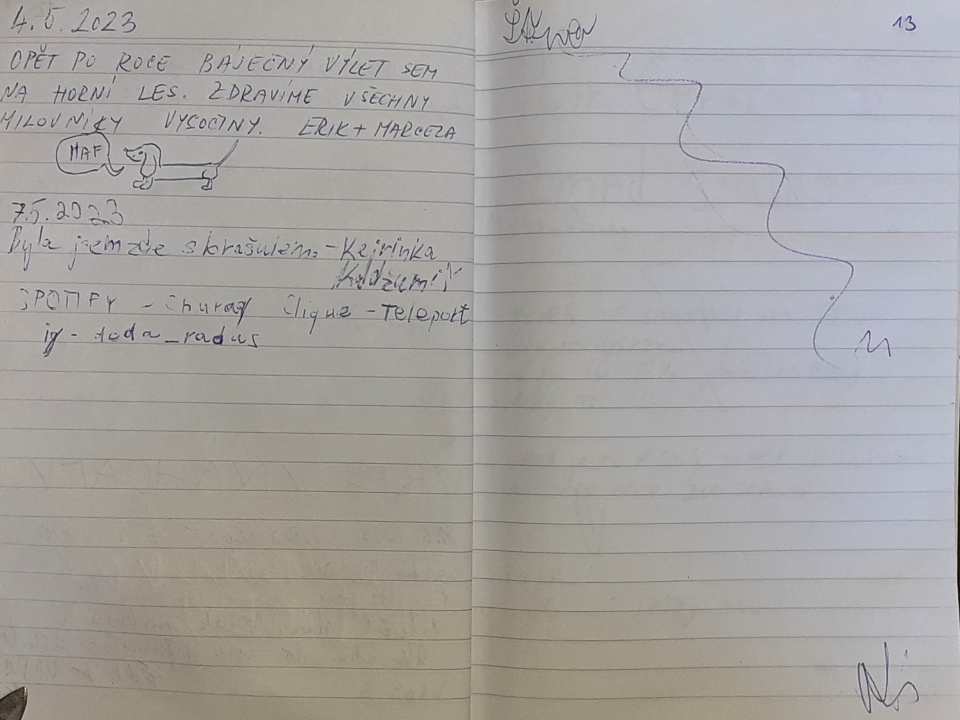 4.5.2023
OPĚT PO ROCE BÁJEČNÝ VÝLET SEM
NA HORNÍ LES. ZDRAVÍME VŠECHNY
MILOVNÍKY VYSOČINY. ERIK + MARCELA
HAF
7.5.2023
Byla jsem zde s - Kejrinka
SPOTIFY - Clique - Teleport
ig - toda_radus
13